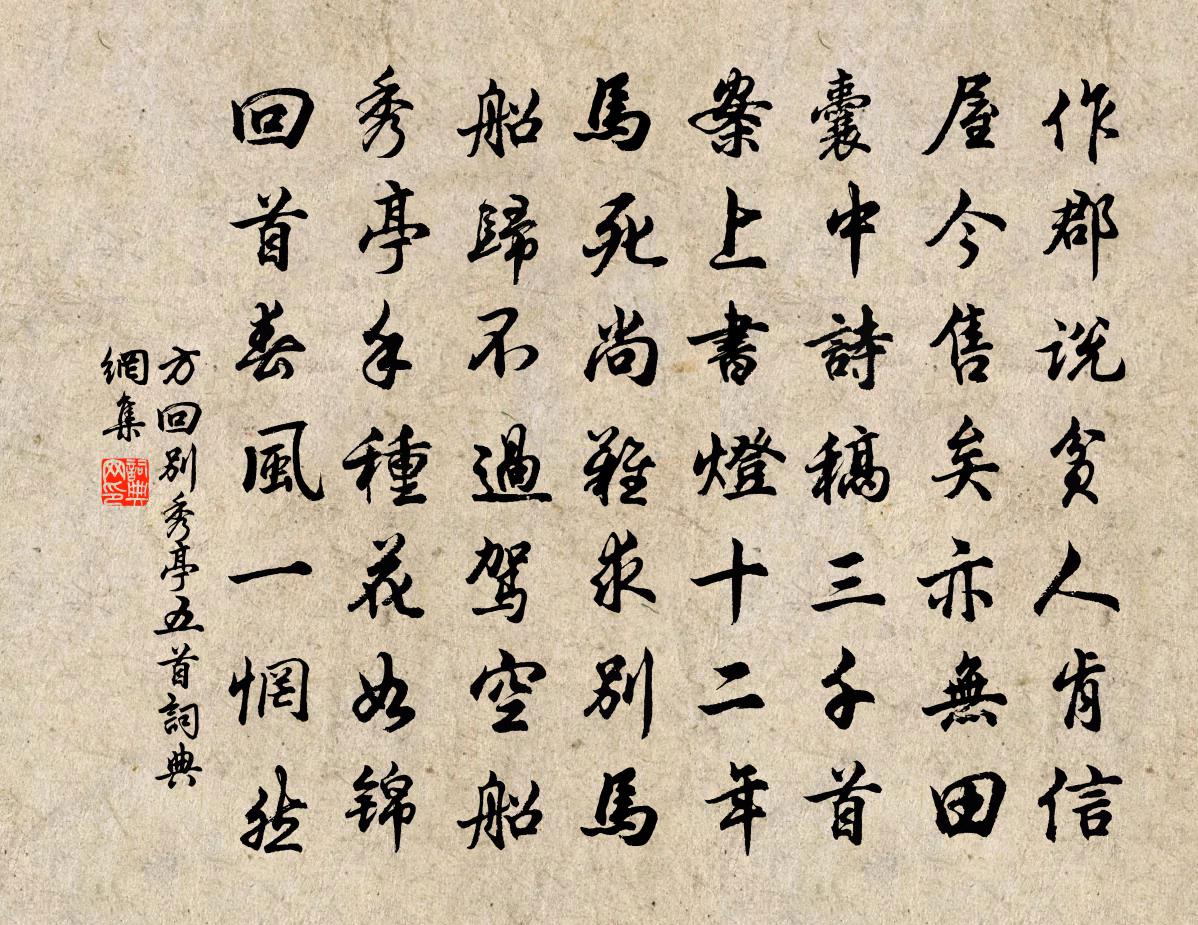 作郡説貧人肯信
屋今售矣亦無田
囊中詩稿三千首
案上書燈十二年
馬死尚難求別馬
船歸不過駕空船
秀亭手種花如錦
回首春風一惘然
方回別秀亭五首詞典
網集
詞典網印